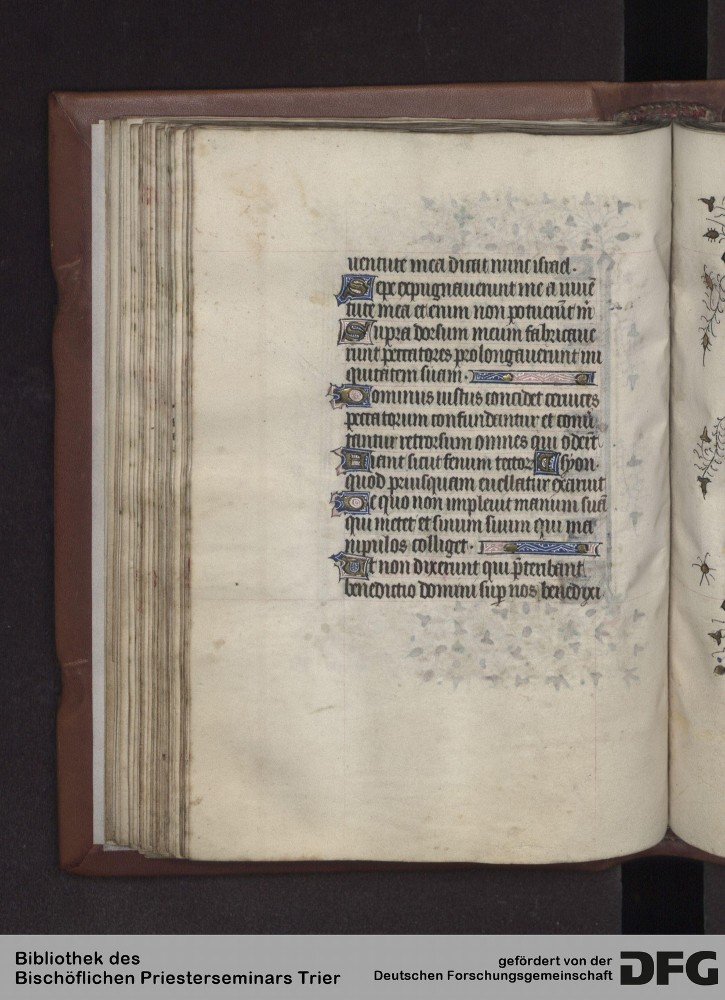 uentute mea dicat nunc israel.
Sepe expugnauerunt me a iuuē
tute mea etenim non potuerūt m̄
Supra dorsum meum fabricaue
runt peccatores prolongauerunt ini
quitatem suam.
Dominus iustus concidet ceruices
peccatorum confundantur et conū
tantur retrorsum omnes qui oderūt
Fiant sicut fenum tectorꝫ syon.
quod priusquam euellatur exaruit
De quo non impleuit manum suā
qui metet et sinum suum qui ma
nipulos colliget.
Et non dixerunt qui p̄teribant
benedictio domini sup nos benedixi
Bibliothek des
Bischöflichen Priesterseminars Trier
gefördert von der
Deutschen Forschungsgemeinschaft
DFG